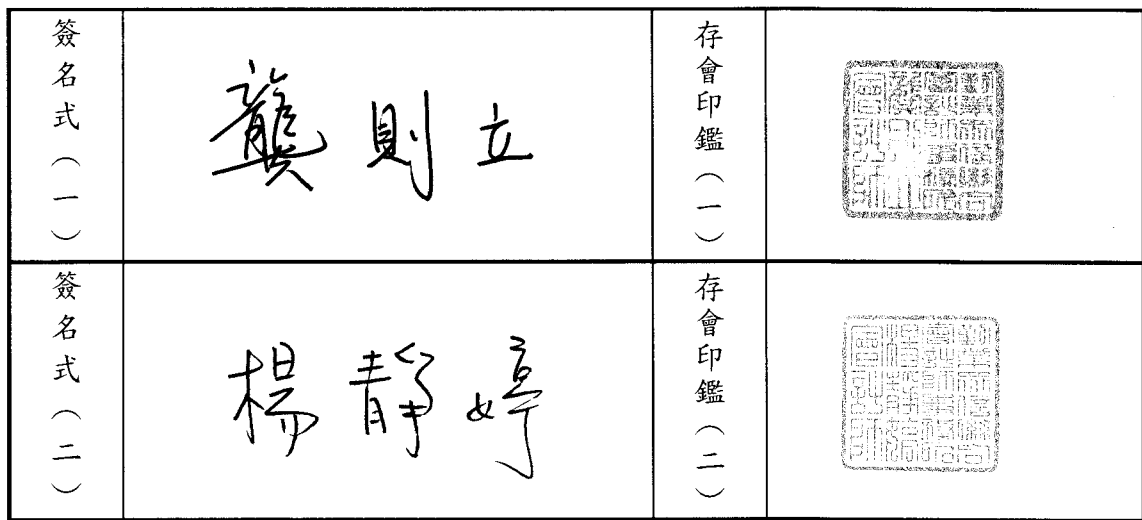 簽名式（一）
龔則立
存會印鑑（一）
簽名式（二）
楊靜婷
存會印鑑（二）